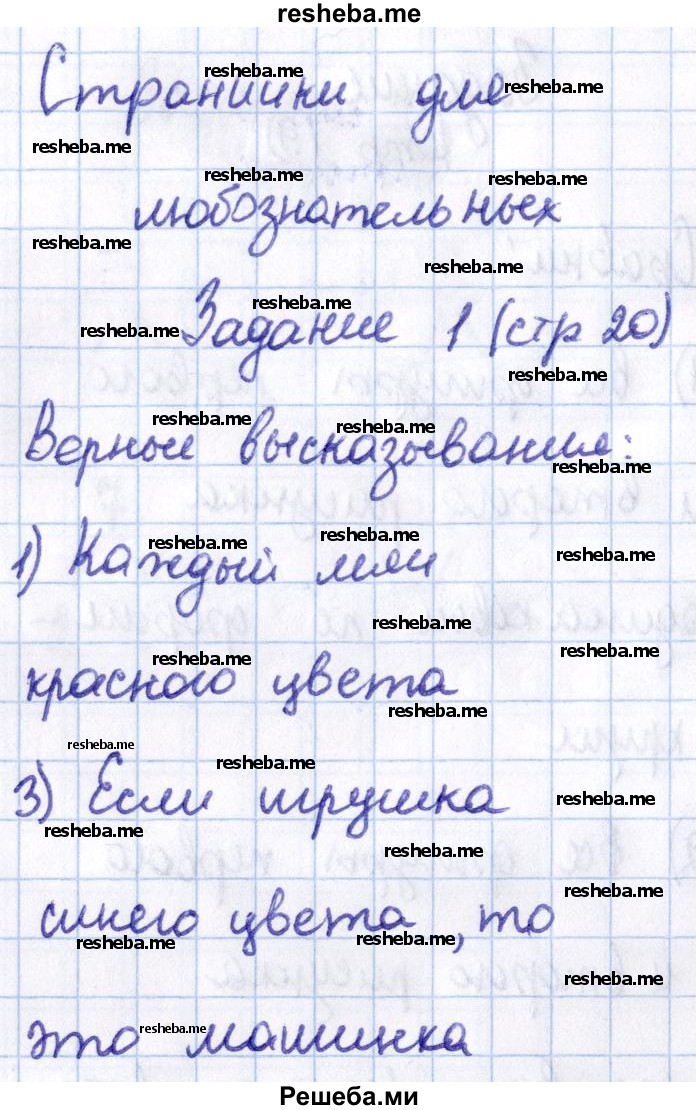 resheba.me
Странички для
resheba.me
resheba.me
resheba.me
resheba.me
resheba.me
любознательных
resheba.me
resheba.me
resheba.me
resheba.me
Задание 1 (стр 20)
resheba.me
resheba.me
resheba.me
Верные высказывания:
resheba.me
resheba.me
resheba.me
resheba.me
1) Каждый мяч
resheba.me
resheba.me
resheba.me
красного цвета
resheba.me
resheba.me
resheba.me
3) Если игрушка
resheba.me
resheba.me
resheba.me
resheba.me
синего цвета, то
resheba.me
resheba.me
resheba.me
это машинка
resheba.me
Решеба.ми